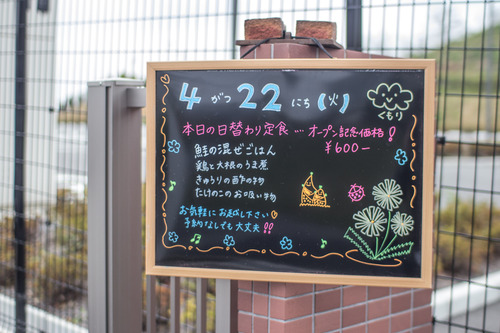 4がつ22にち(火)
くもり
本日の日替わり定食…オープン記念価格!
¥600-
鮭の混ぜごはん
鶏と大根のうま煮
きゅうりの酢の物
たけのこのお吸い物
お気軽にお越し下さい
予約なしでも大丈夫!!